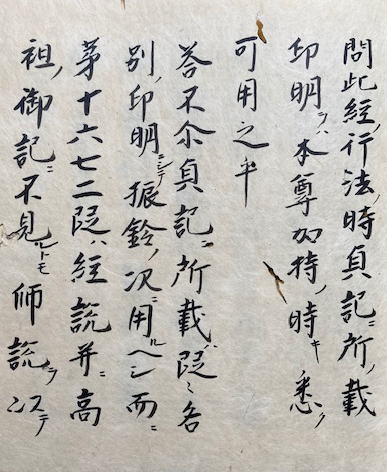 問此經ノ行法ノ時貞記ニ所ノ載
印明ヲハ本尊加持ノ時キ悉ク
可用之乎
答不尒貞記ニ所載ハ段〻各
別ノ印明ニシテ振鈴ノ次ニ用ルヘシ而ニ
茅十六七二段ハ經説并ニ高
祖ノ御記ニ不見ルトモ師説ヲ以テ